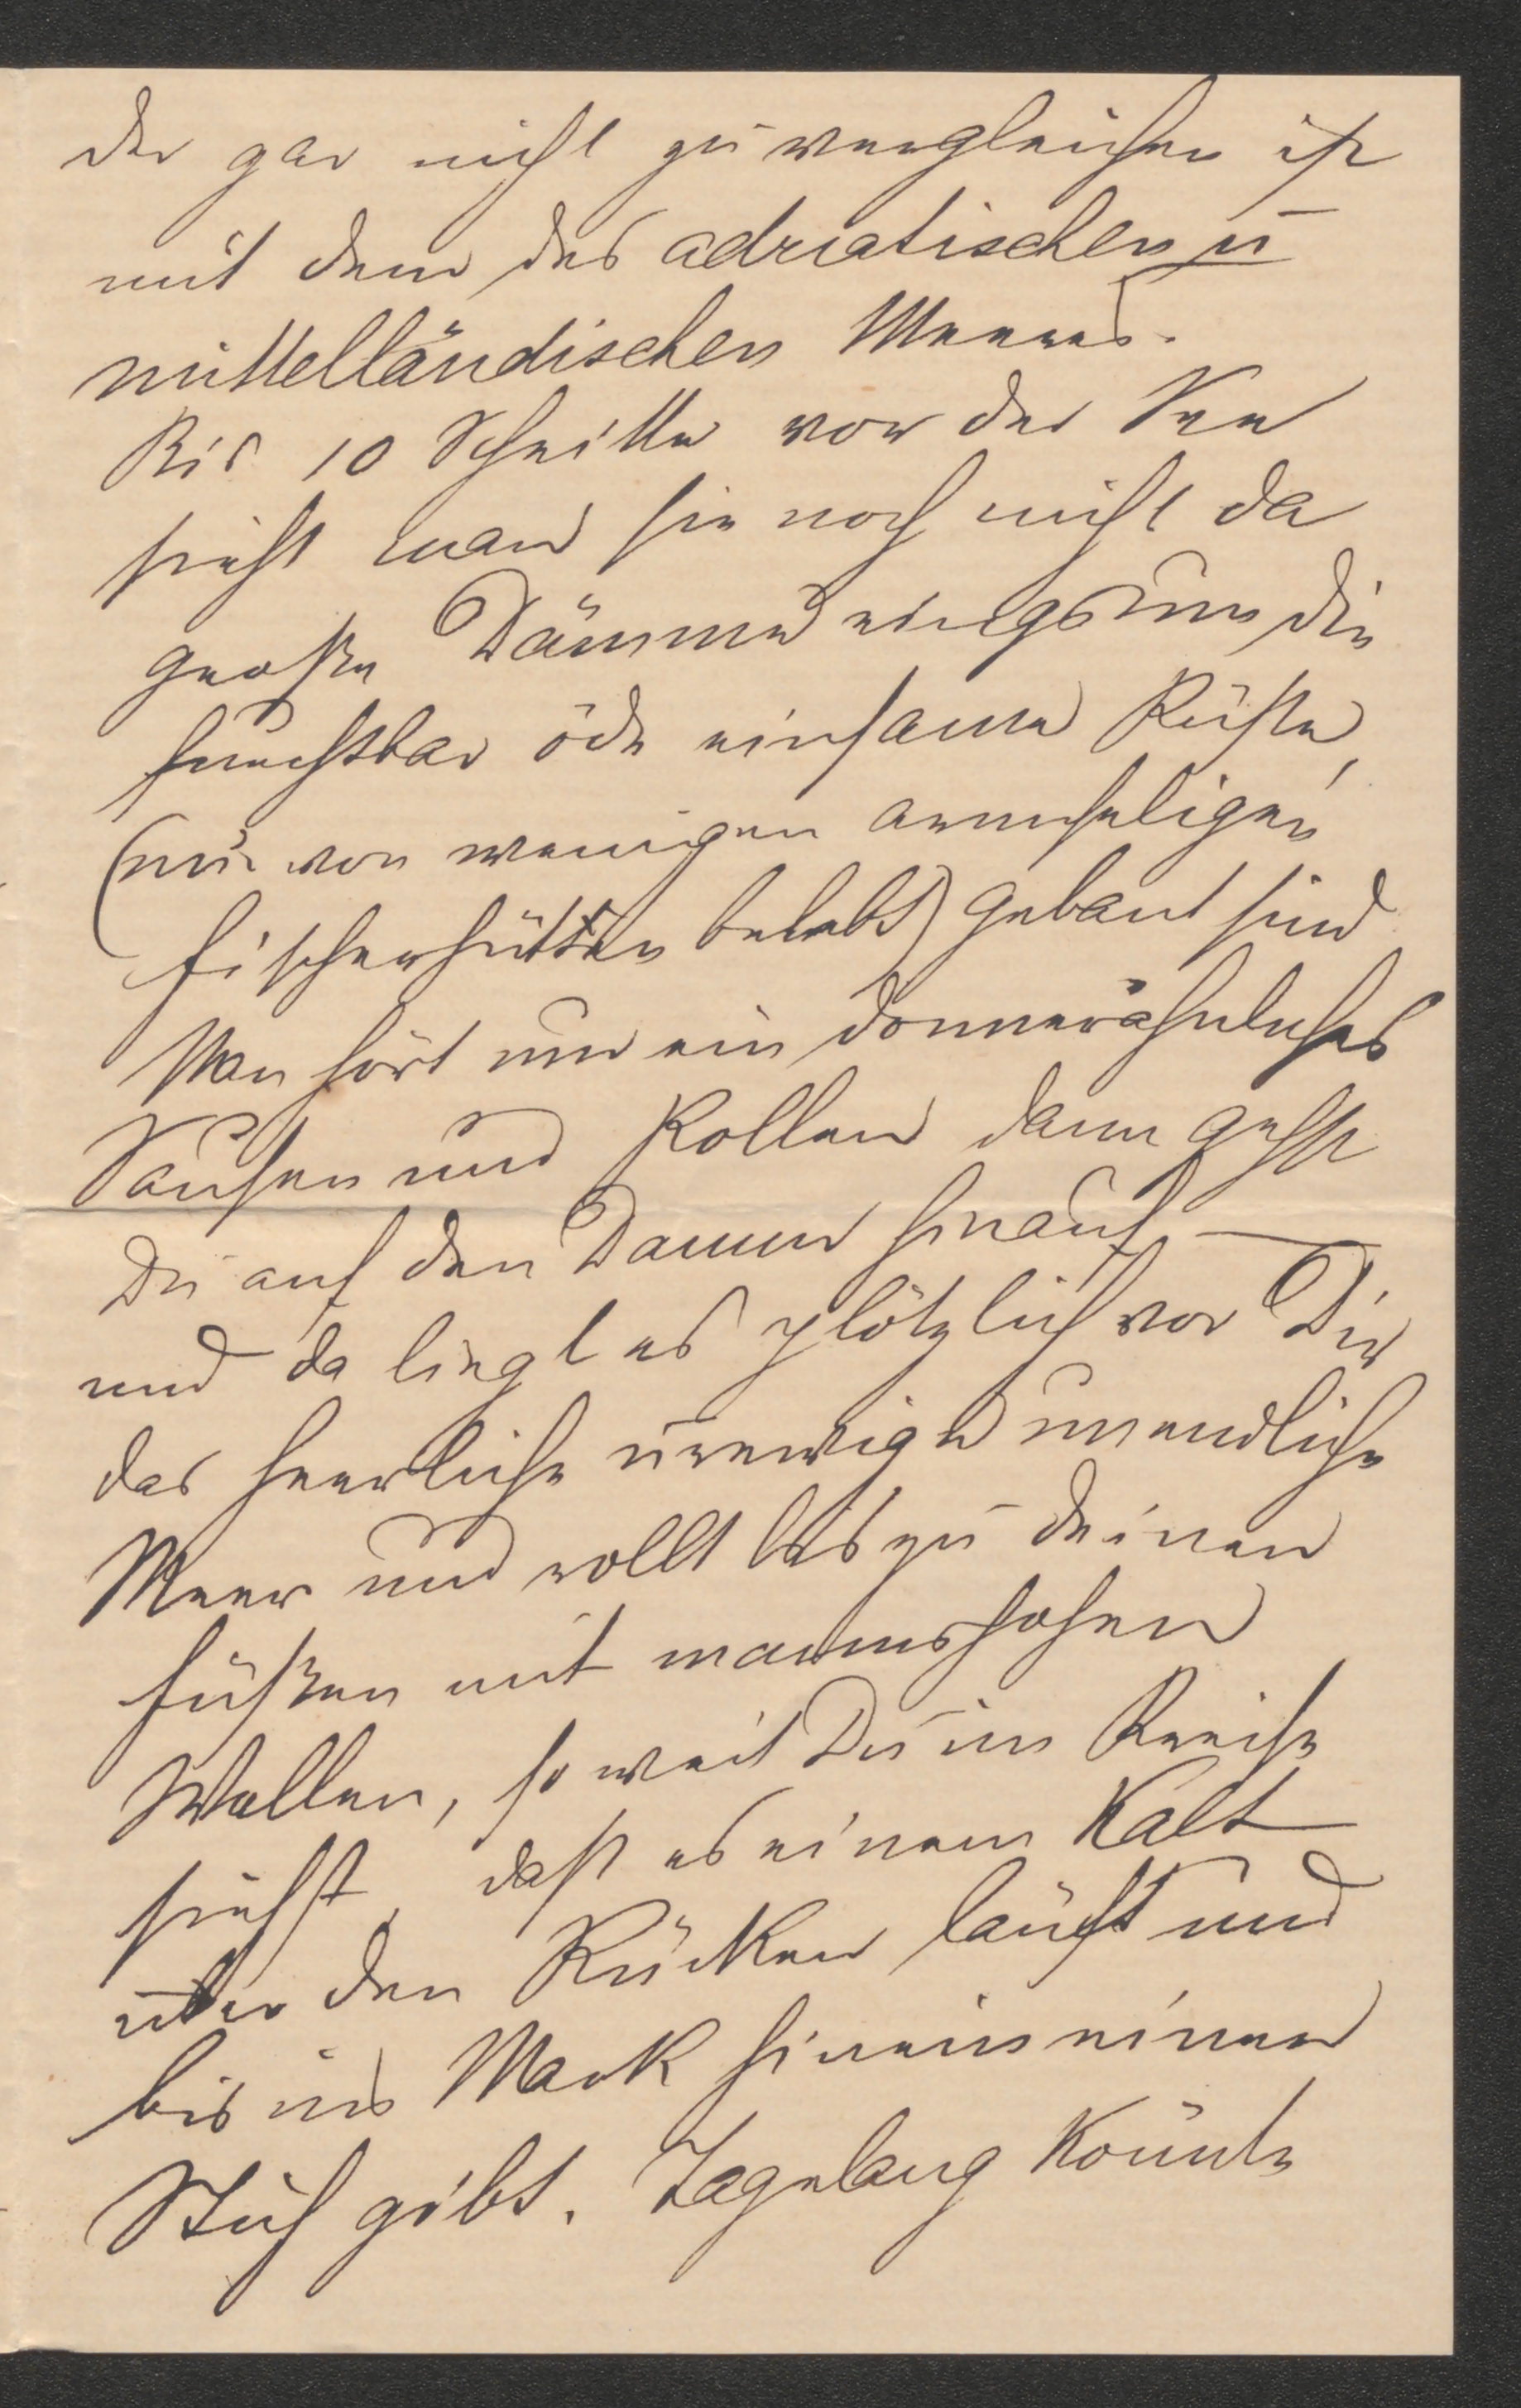 der gar nicht zu vergleichen ist
mit dem des adriatischen u
mittelländischen Meeres.
Bis 10 Schritte vor der See
sieht man sie noch nicht da
große Dämme rings um die
furchtbar öde einsame Küste,
(nur von wenigen armseligen
Fischerhütten belebt) gebaut sind
Man hört nur ein donnerähnliches
Sausen und Rollen dann gehst
Du auf den Damm hinauf —
und da liegt es plötzlich vor Dir
das herrliche urewige unendliche
Meer und rollt bis zu deinen
Füßen mit mannshohen
Wellen, so weit Du im Kreise
siehst, daß es einem Kalt
über den Rücken läuft und
bis ins Mark hinein einen
Stich gibt. Tagelang könnte